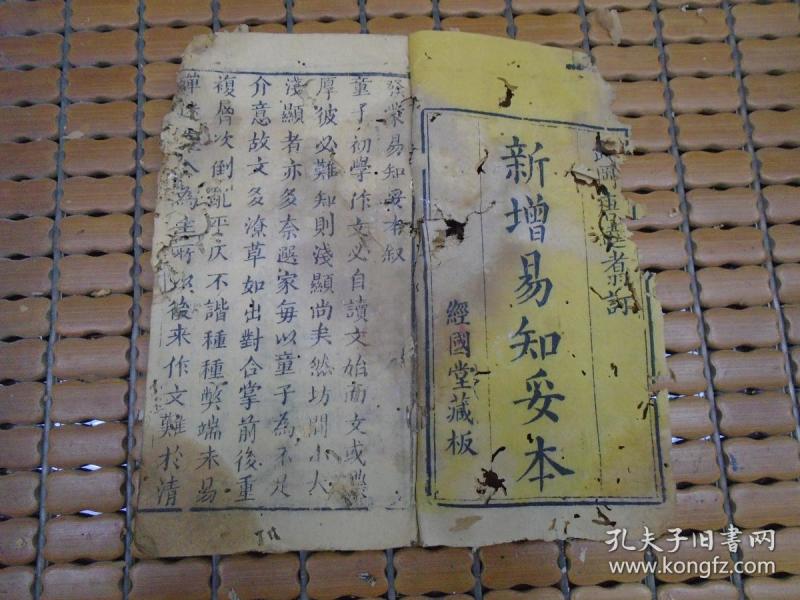 者訂
新增易知妥本
經國堂藏板
發蒙易知妥本叙
童子初學作文必自讀文始而文或
厚彼必難知則淺顯尚矣然坊間小人
淺顯者亦多奈選家每以童子為不足
介意故文多潦草如出對合掌前後重
複層次倒亂平仄不諧種種弊端未易
為主所以後來作文難於清
孔夫子旧书网
www.kongfz.com